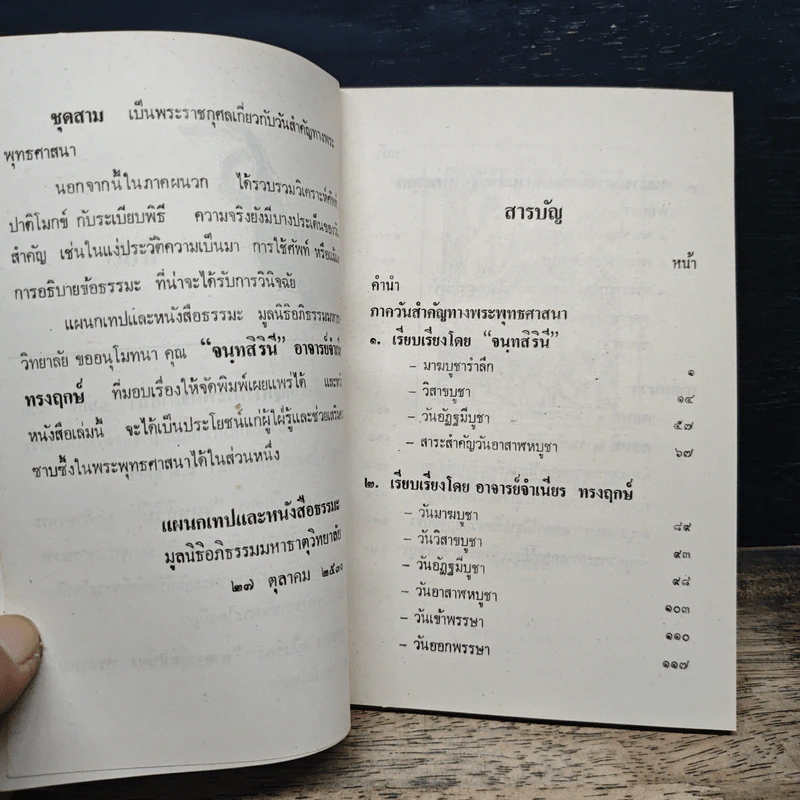 ชุดสาม เป็นพระราชกุศลเกี่ยวกับวันสำคัญทางพระ
พุทธศาสนา
นอกจากนี้ในภาคผนวก ได้รวบรวมวิเคราะห์ศัพท์
ปาติโมกข์ กับระเบียบพิธี ความจริงยังมีบางประเด็นของวัน
สำคัญ เช่นในแง่ประวัติความเป็นมา การใช้ศัพท์ หรือแม้แต่
การอธิบายข้อธรรมะ ที่น่าจะได้รับการวินิจฉัย
แผนกเทปและหนังสือธรรมะ มูลนิธิอภิธรรมมหาธาตุ
วิทยาลัย ขออนุโมทนา คุณ “จนฺทสิรินี” อาจารย์จำเนียร
ทรงฤกษ์ ที่มอบเรื่องให้จัดพิมพ์เผยแพร่ได้ และหวังว่า
หนังสือเล่มนี้ จะได้เป็นประโยชน์แก่ผู้ใฝ่รู้และช่วยเสริม
ซาบซึ้งในพระพุทธศาสนาได้ในส่วนหนึ่ง
แผนกเทปและหนังสือธรรมะ
มูลนิธิอภิธรรมมหาธาตุวิทยาลัย
๒๗ ตุลาคม ๒๕๓๐
สารบัญ
หน้า
คำนำ
ภาควันสำคัญทางพระพุทธศาสนา
๑. เรียบเรียงโดย “จนฺทสิรินี”
– มาฆบูชารำลึก ๑
– วิสาขบูชา ๑๔
– วันอัฏฐมีบูชา ๕๗
– สาระสำคัญวันอาสาฬหบูชา ๖๗
๒. เรียบเรียงโดย อาจารย์จำเนียร ทรงฤกษ์
– วันมาฆบูชา ๘๙
– วันวิสาขบูชา ๙๓
– วันอัฏฐมีบูชา ๙๘
– วันอาสาฬหบูชา ๑๐๓
– วันเข้าพรรษา ๑๑๐
– วันออกพรรษา ๑๑๗